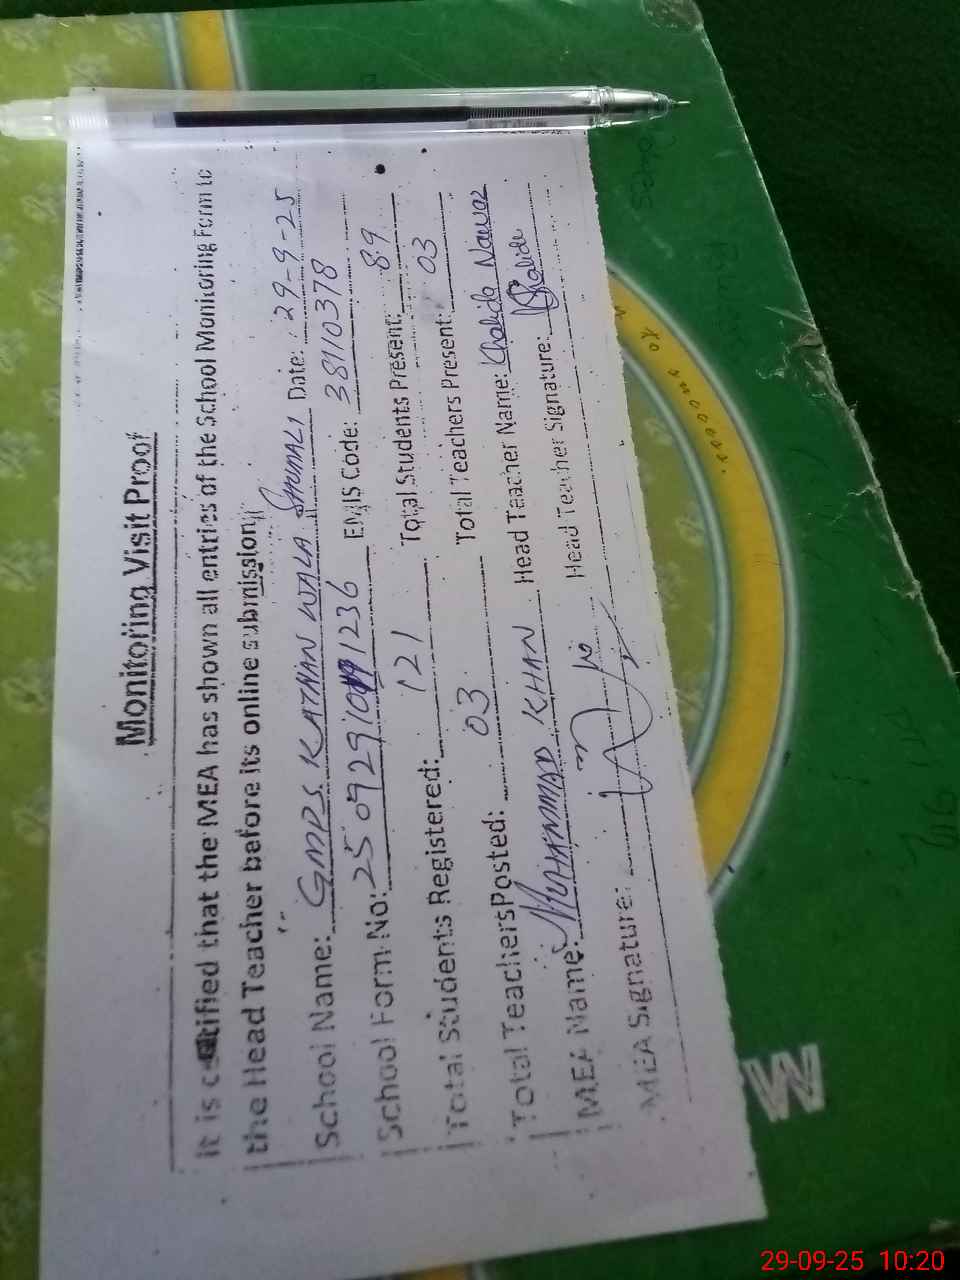 Monitoring Visit Proof
It is certified that the MEA has shown all entries of the School Monitoring Form to
the Head Teacher before its online submission
School Name: GMPS KATHAN WALA SHUMALI Date: 29-9-25
School Form No: 1236 EMIS Code: 38110378
Total Students Registered: 121 Total Students Present: 89
Total Teachers Posted: 03 Total Teachers Present: 03
MEA Name: MUHAMMAD KHAN Head Teacher Name: Khalida Nawaz
MEA Signature: Head Teacher Signature: Khalida
W
29-09-25 10:20